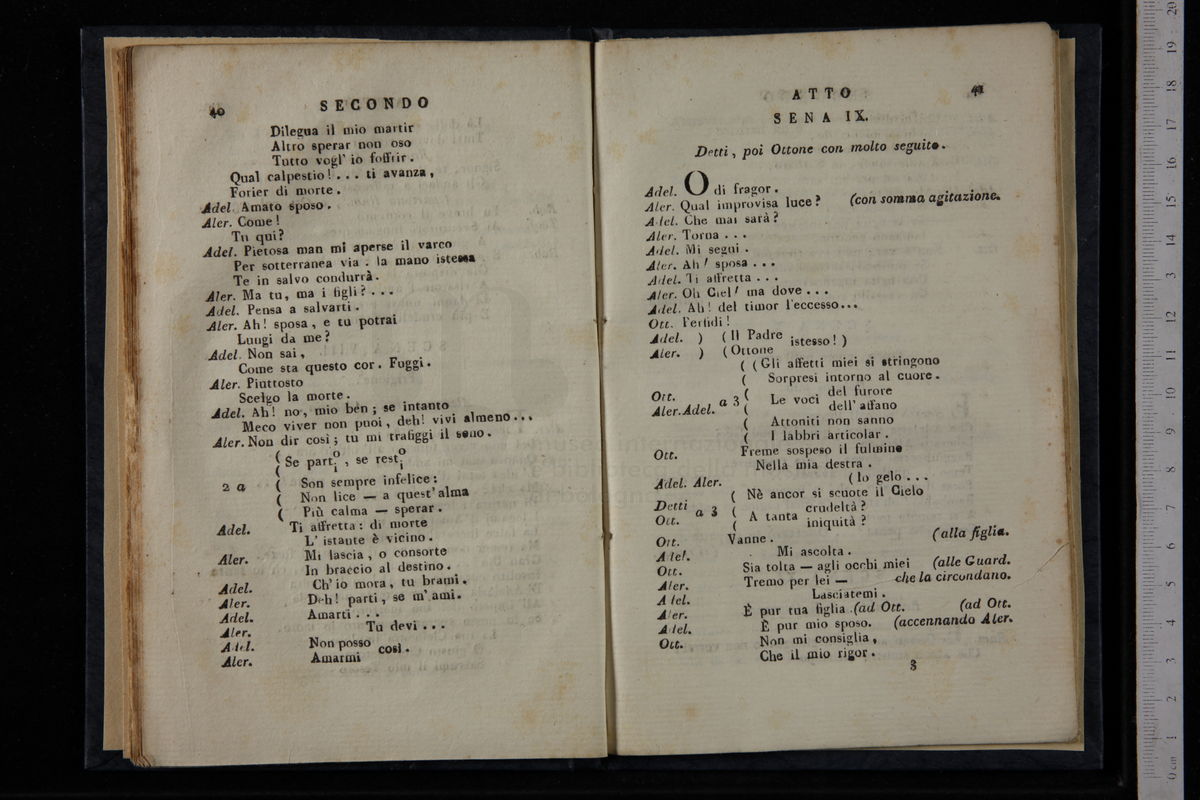 40 SECONDO
Dilegua il mio martir
Altro sperar non oso
Tutto vogl' io soffrir.
Qual calpestio! ... ti avanza,
Forier di morte.
Adel. Amato sposo.
Aler. Come!
Tu qui?
Adel. Pietosa man mi aperse il varco
Per sotterranea via . la mano istessa
Te in salvo condurrà.
Aler. Ma tu, ma i figli? ...
Adel. Pensa a salvarti.
Aler. Ah! sposa, e tu potrai
Lungi da me?
Adel. Non sai,
Come sta questo cor. Fuggi.
Aler. Piuttosto
Scelgo la morte.
Adel. Ah! no, mio ben; se intanto
Meco viver non puoi, deh! vivi almeno...
Aler. Non dir così; tu mi trafiggi il seno.
(Se part o i , se rest o i
2 a ( Son sempre infelice:
( Non lice — a quest' alma
( Più calma — sperar.
Adel. Ti affretta: di morte
L' istante è vicino.
Aler. Mi lascia, o consorte
In braccio al destino.
Adel. Ch' io mora, tu brami.
Aler. Deh! parti, se m' ami.
Adel. Amarti ...
Aler. Tu devi ...
Adel. Non posso
Aler. Amarmi così.
ATTO 41
SENA IX.
Detti, poi Ottone con molto seguito.
Adel. Odi fragor.
Aler. Qual improvisa luce? (con somma agitazione.
Adel. Che mai sarà?
Aler. Torna ...
Adel. Mi segui.
Aler. Ah! sposa ...
Adel. Ti affretta ...
Aler. Oh Ciel! ma dove ...
Adel. Ah! del timor l'eccesso...
Ott. Perfidi!
Adel. ) ( Il Padre istesso! )
Aler. ) ( Ottone
( ( Gli affetti miei si stringono
( Sorpresi intorno al cuore.
Ott. a 3 ( Le voci del furore
Aler. Adel. ( dell' affano
( Attoniti non sanno
( I labbri articolar.
Ott. Freme sospeso il fulmine
Nella mia destra.
Adel. Aler. (Io gelo ...
( Nè ancor si scuote il Cielo
Detti a 3 ( A tanta crudeltà?
Ott. ( iniquità?
Ott. Vanne. (alla figlia.
Adel. Mi ascolta.
Ott. Sia tolta — agli occhi miei (alle Guard.
Aler. Tremo per lei — che la circondano.
Adel. Lasciatemi.
Aler. È pur tua figlia .(ad Ott. (ad Ott.
Adel. È pur mio sposo. (accennando Aler.
Ott. Non mi consiglia,
Che il mio rigor.
3